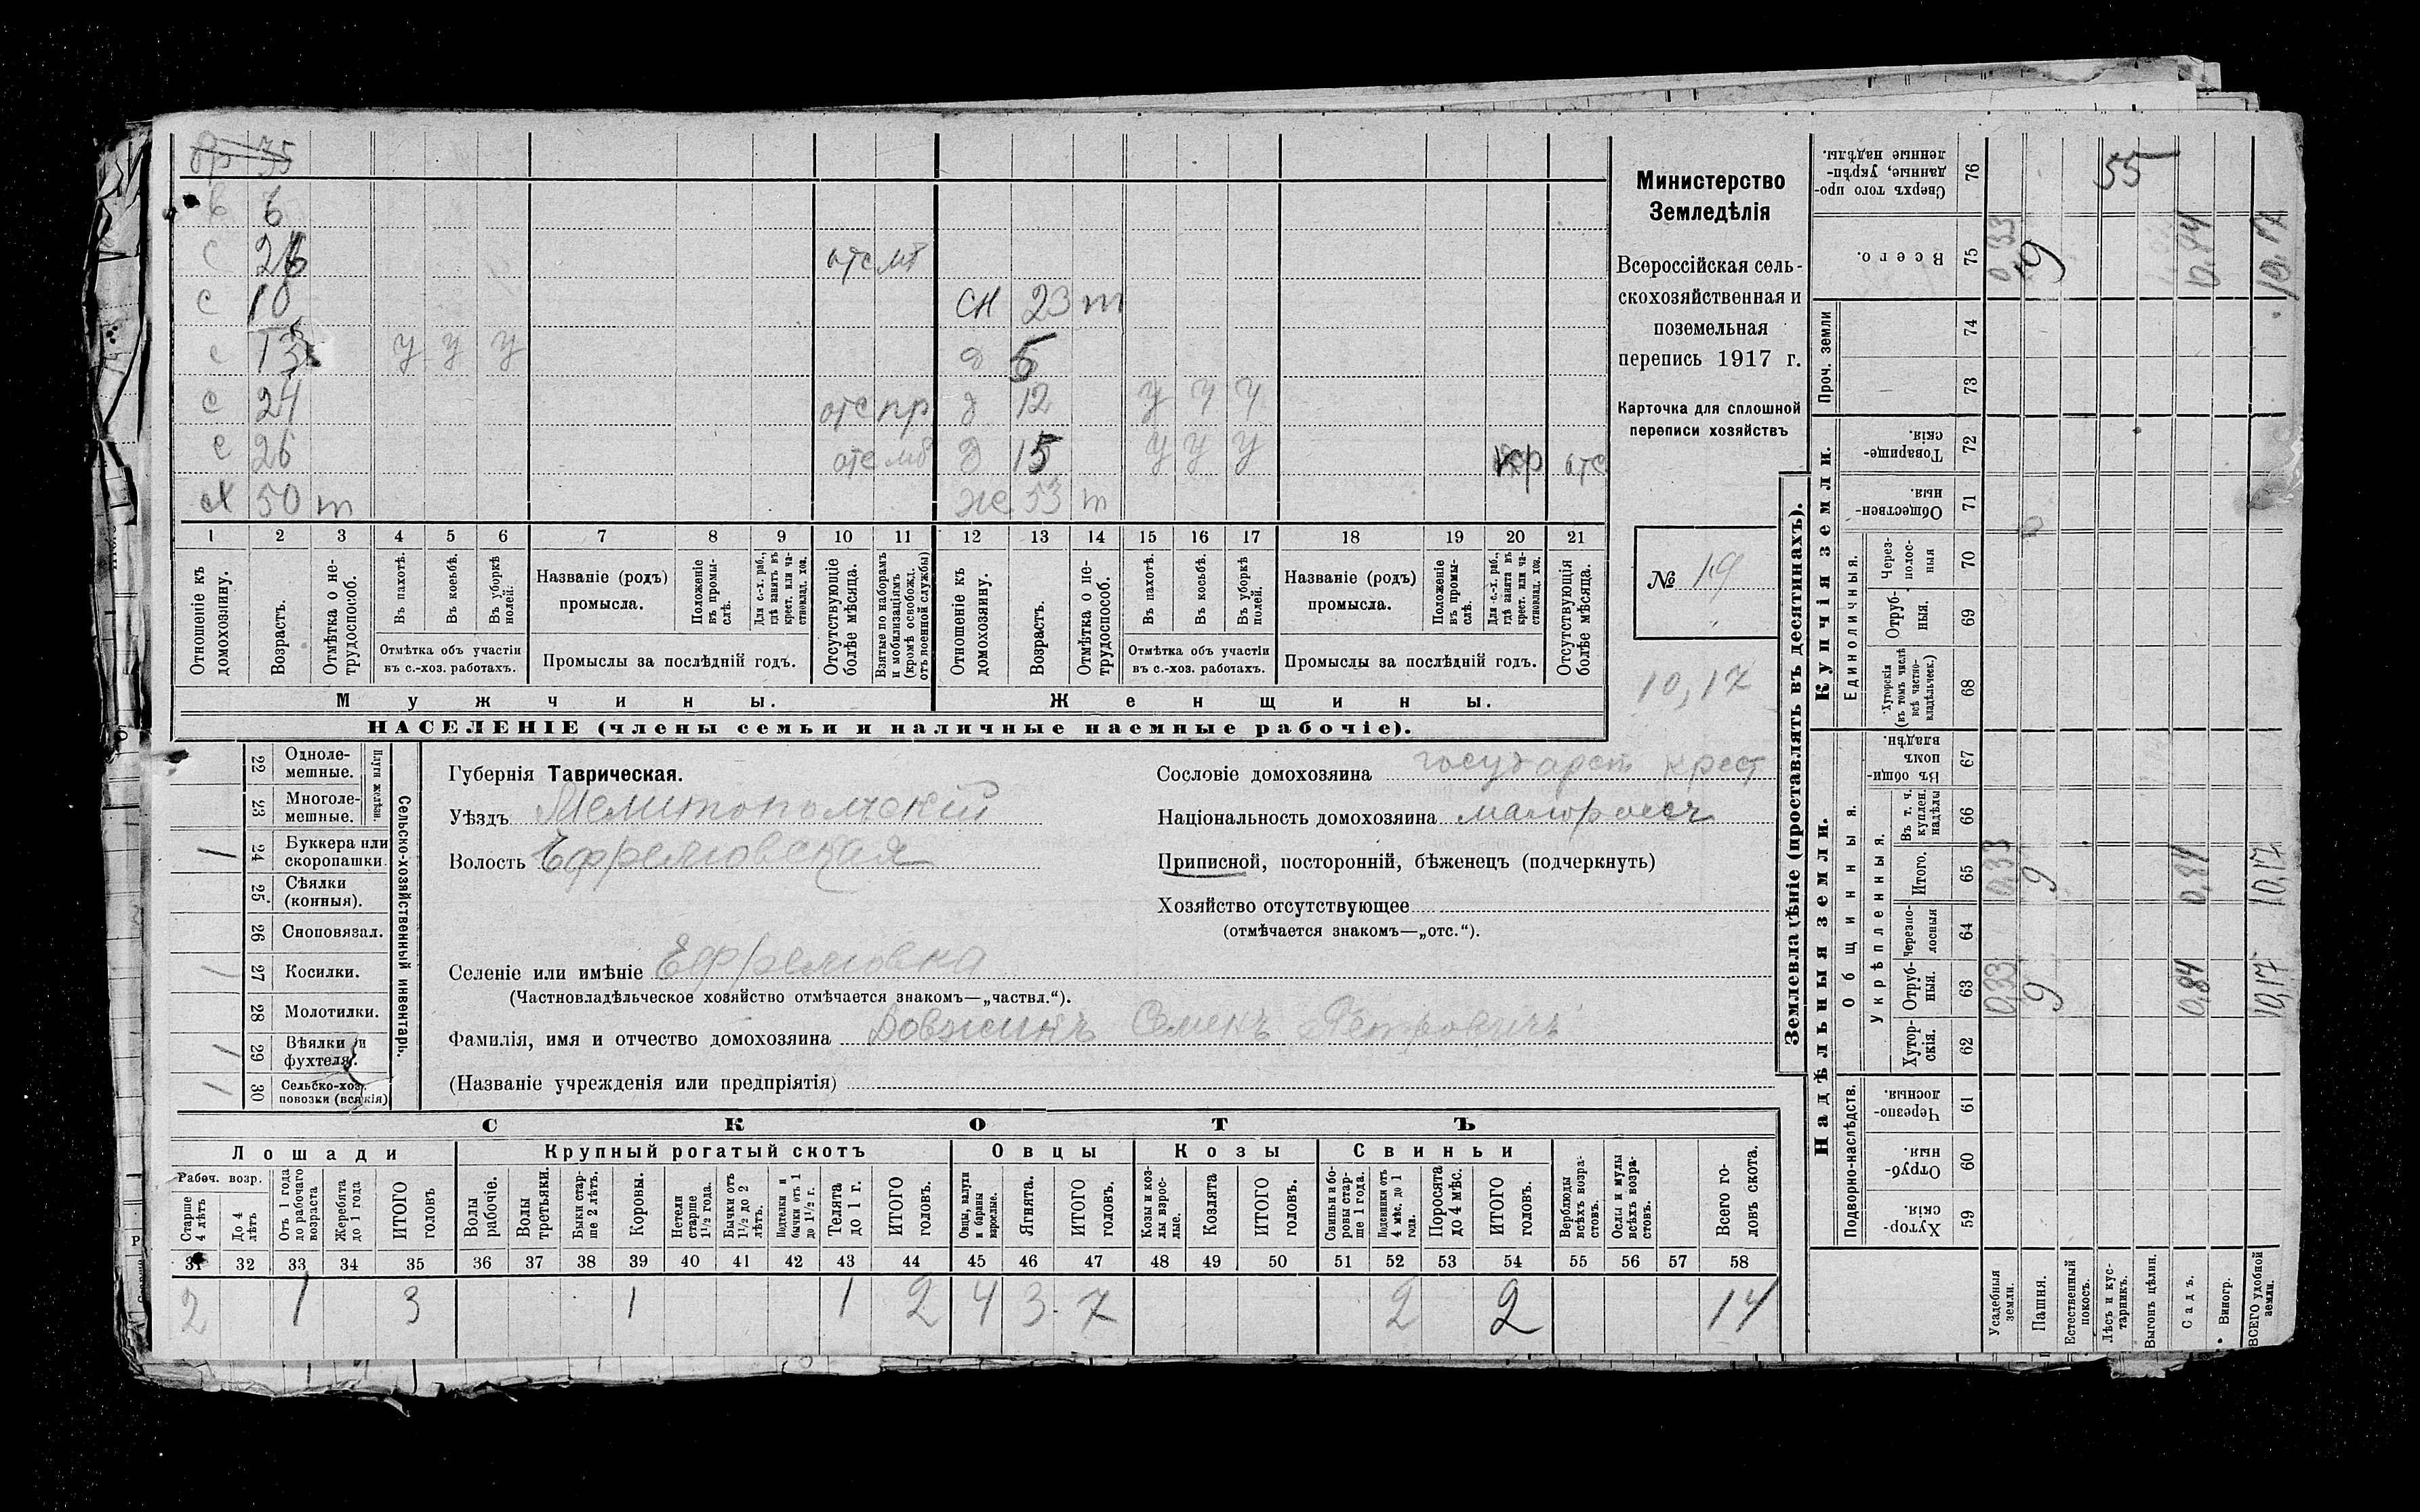 бр 35
в 6
с 26 отс мб
с 10 сн 23 т
с 13 у у у д 5
с 24 отс пр д 12 у у у
с 26 отс мб д 15 у у у отс
х 50 т же 53 т
1 2 3 4 5 6 7 8 9 10 11 12 13 14 15 16 17 18 19 20 21
Отношеніе къ домохозяину.
Возрастъ.
Отмѣтка о нетрудоспособ.
Въ пахотѣ.
Въ косьбѣ.
Въ уборкѣ полей.
Отмѣтка объ участіи въ с.-хоз. работахъ.
Названіе (родъ) промысла.
Положеніе въ промыслѣ.
Для с.-х. раб., гдѣ занятъ въ крест. или частновлад. хоз.
Промыслы за послѣдній годъ.
Отсутствующіе болѣе мѣсяца.
Взятые по наборамъ и мобилизаціямъ (кромѣ освобожд. отъ военной службы)
Отношеніе къ домохозяину.
Возрастъ.
Отмѣтка о нетрудоспособ.
Въ пахотѣ.
Въ косьбѣ.
Въ уборкѣ полей.
Отмѣтка объ участіи въ с.-хоз. работахъ.
Названіе (родъ) промысла.
Положеніе въ промыслѣ.
Для с.-х. раб., гдѣ занята въ крест. или частновлад. хоз.
Промыслы за послѣдній годъ.
Отсутствующія болѣе мѣсяца.
Мужчины. Женщины.
НАСЕЛЕНІЕ (члены семьи и наличные наемные рабочіе).
Министерство
Земледѣлія
Всероссійская сель-
скохозяйственная и
поземельная
перепись 1917 г.
Карточка для сплошной
переписи хозяйствъ
№ 19
10,17
Сельско-хозяйственный инвентарь.
Плуги желѣзн.
22 Одноле-мешные.
23 Многоле-мешные.
1 24 Буккера или скоропашки.
25 Сѣялки (конныя).
26 Сноповязал.
1 27 Косилки.
28 Молотилки.
1 29 Вѣялки и фухтеля.
1 30 Сельско-хоз. повозки (всякія)
Губернія Таврическая.
Уѣздъ Мелитопольскій
Волость Ефремовская
Селеніе или имѣніе Ефремовка
(Частновладѣльческое хозяйство отмѣчается знакомъ—„частвл.“).
Фамилія, имя и отчество домохозяина Довжикъ Семенъ Петровичъ
(Названіе учрежденія или предпріятія)
Сословіе домохозяина государст крест
Національность домохозяина малороссъ
Приписной, посторонній, бѣженецъ (подчеркнуть)
Хозяйство отсутствующее
(отмѣчается знакомъ—„отс.“).
СКОТЪ
Лошади Крупный рогатый скотъ Овцы Козы Свиньи
Рабоч. возр.
Старше 4 лѣтъ
До 4 лѣтъ
Отъ 1 года до рабочаго возраста
Жеребята до 1 года
ИТОГО головъ
Волы рабочіе.
Волы третьяки.
Быки старше 2 лѣтъ.
Коровы.
Нетели старше 1½ года.
Бычки отъ 1½ до 2 лѣтъ.
Подтелки и бычки отъ 1 до 1½ г.
Телята до 1 г.
ИТОГО головъ.
Овцы, валухи и бараны взрослые.
Ягнята.
ИТОГО головъ.
Козы и козлы взрослые.
Козлята
ИТОГО головъ.
Свиньи и боровы старше 1 года.
Подсвинки отъ 4 мѣс. до 1 года.
Поросята до 4 мѣс.
ИТОГО головъ.
Верблюды всѣхъ возрастовъ.
Ослы и мулы всѣхъ возрастовъ.
Всего головъ скота.
31 32 33 34 35 36 37 38 39 40 41 42 43 44 45 46 47 48 49 50 51 52 53 54 55 56 57 58
2 1 3 1 1 2 4 3 7 2 2 14
Землевладѣніе (проставлять въ десятинахъ).
Надѣльныя земли. Купчія земли. Проч. земли
Подворно-наслѣдств.
Общинныя.
Укрѣпленныя.
Единоличныя.
Хуторскія. 59
Отрубныя. 60
Черезполосныя. 61
Хуторскія. 62
Отрубныя. 63 0,33 9 0,84 10,17
Черезполосныя 64
Итого. 65 0,33 9 0,84 10,17
Въ т. ч. куплен. надѣлы 66
Въ общинномъ владѣн. 67
Хуторскія (въ томъ числѣ всѣ частновладѣльческ.) 68
Отрубныя. 69
Черезполосныя 70
Общественныя. 71
Товарищескія. 72
73
74
Всего. 75 0,33 9 0,84 10,17
Сверхъ того проданные, укрѣпленные надѣлы. 76 55
Усадебныя земли.
Пашня.
Естественный покосъ.
Лѣсъ и кустарникъ.
Выгонъ цѣлин.
Садъ.
Виногр.
ВСЕГО удобной земли.